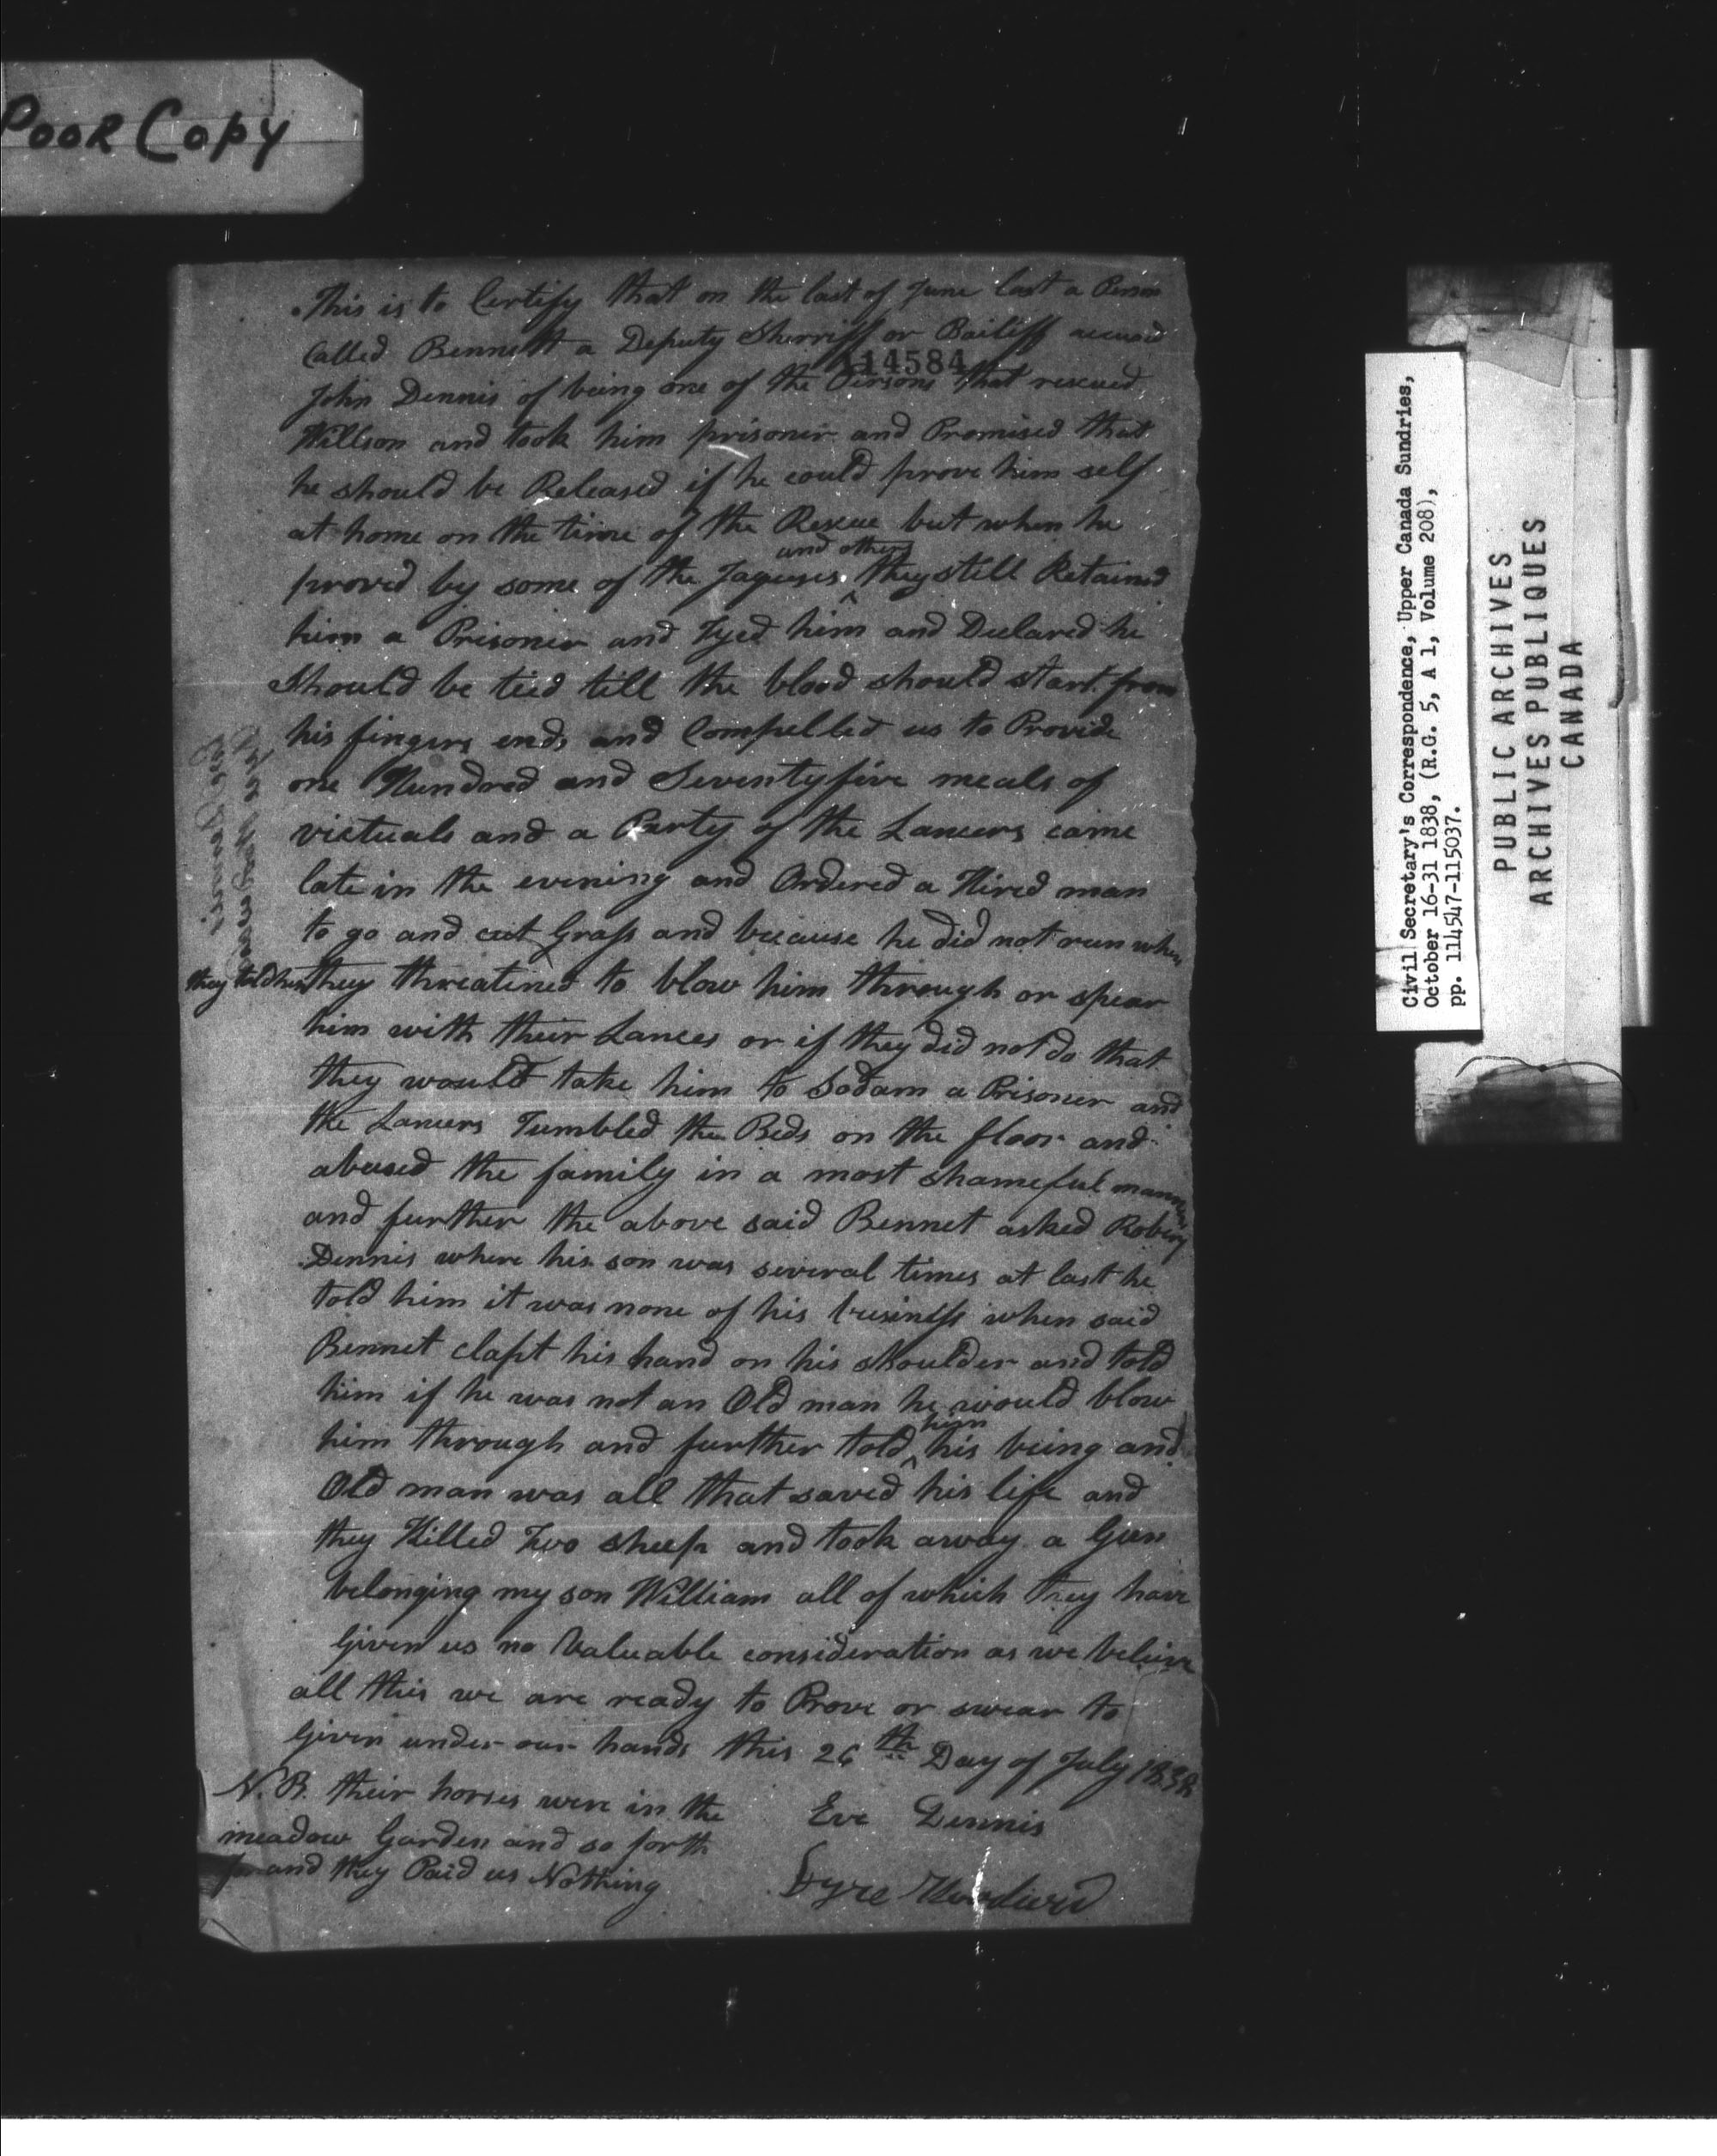 Poor Copy
This is to Certify that on the last of June last a Person
Called Bennett a Deputy Sherriff or Bailiff accused
114584
John Dennis of being one of the Persons that rescued
Willson and took him prisoner and Promised that
he should be Released if he could prove him self
at home on the time of the Rescue but when he
and others
proved by some of the Jaquises ^ they still Retained
him a Prisoner and Tyed him and Declared he
Should be tied till the blood should start from
his fingers ends and Compelled us to Provide
one Hundred and Seventyfive meals of
victuals and a Party of the Lancers came
late in the evening and Ordered a Hired man
to go and cut Grass and because he did not run when
they told him they threatined to blow him through or spear
him with their Lances or if they did not do that
they would take him to Sodam a Prisoner and
the Lancers Tumbled the Beds on the floor and
abused the family in a most shameful manner
and further the above said Bennet asked Robert
Dennis where his son was several times at last he
told him it was none of his business when said
Bennet clapt his hand on his shoulder and told
him if he was not an Old man he would blow
him
him through and further told ^ his being and
Old man was all that saved his life and
they Killed Two sheep and took away a Gun
belonging my son William all of which they have
Given us no Valuable consideration as we believe
all this we are ready to Prove or swear to
Given under our hands this 26th Day of July 1838
N.B. their horses were in the
meadow Garden and so forth
and they Paid us Nothing
Eve Dennis
Civil Secretary's Correspondence, Upper Canada Sundries,
October 16-31 1838, (R.G. 5, A 1, Volume 208),
pp. 114547-115037.
PUBLIC ARCHIVES
ARCHIVES PUBLIQUES
CANADA